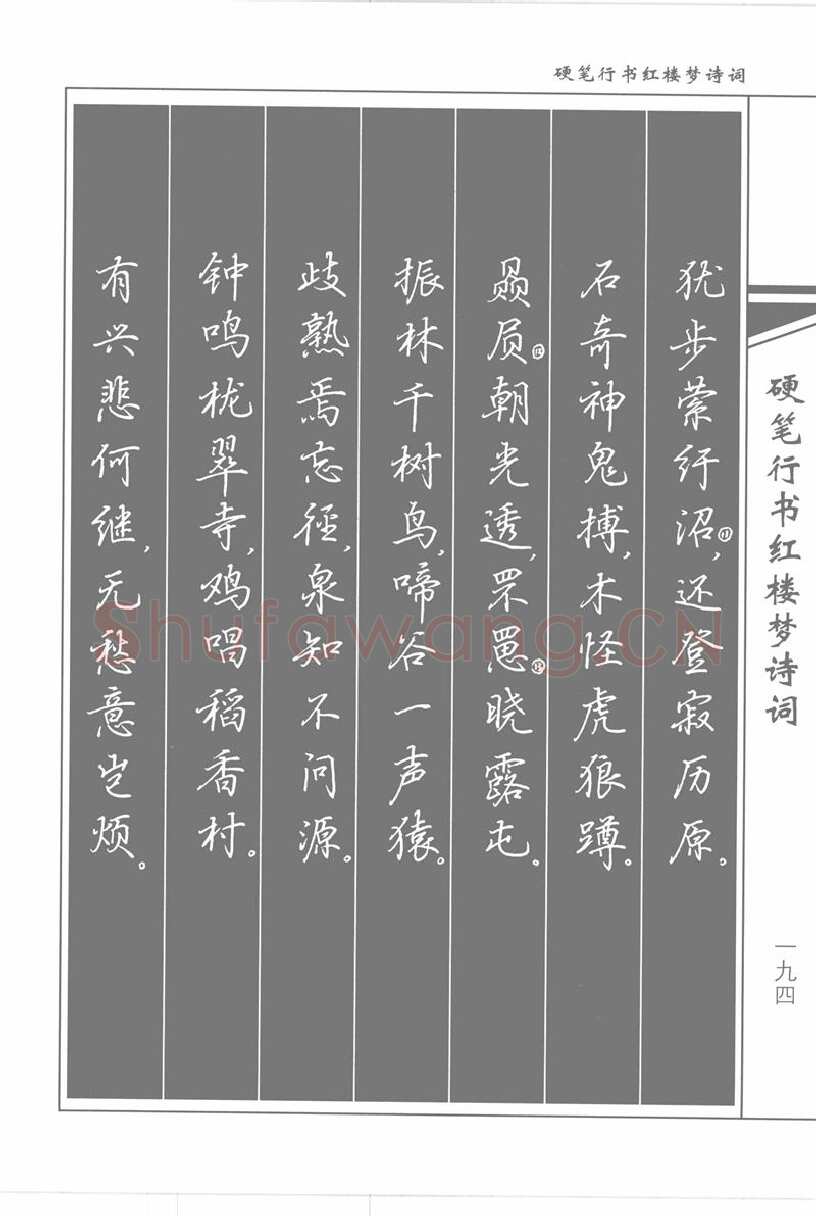 硬笔行书红楼梦诗词
犹步萦纡沼⑪,还登寂历原。
石奇神鬼搏,木怪虎狼蹲。
赑屃⑫朝光透,罘罳⑬晓露屯。
振林千树鸟,啼谷一声猿。
歧熟焉忘径,泉知不问源。
钟鸣栊翠寺,鸡唱稻香村。
有兴悲何继,无愁意岂烦。
硬笔行书红楼梦诗词
一九四
Shufawang.CN